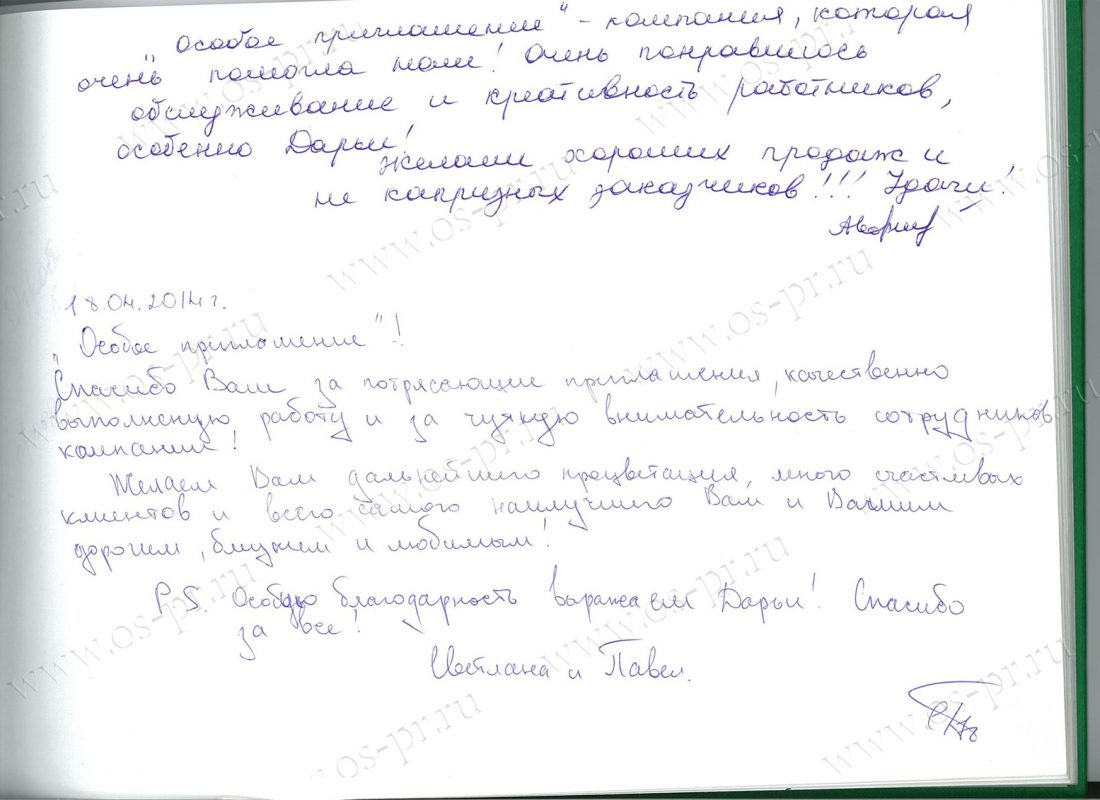 "Особое приглашение" - компания, которая
очень помогла нам! Очень понравилось
обслуживание и креативность работников,
особенно Дарьи!
Желаем хороших продаж и
не капризных заказчиков!!! Удачи!
18.04.2014г.
"Особое приглашение"!
Спасибо Вам за потрясающие приглашения, качественно
выполненую работу и за чуткую внимательность сотрудников
компании!
Желаем Вам дальнейшего процветания, много счастливых
клиентов и всего самого наилучшего Вам и Вашим
дорогим, близким и любимым!
P.S. Особую благодарность выражаем Дарьи! Спасибо
за все!
Светлана и Павел.
www.os-pr.ru